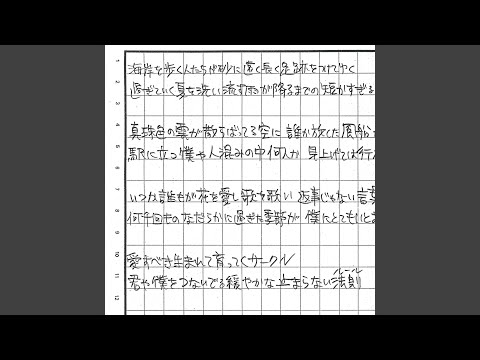 1
海岸を歩く人たちが砂に遠く長く足跡をつけてゆく
2
過ぎていく夏を洗い流す雨が降るまでの短かすぎる
3
4
真珠色の雲が散らばってる空に 誰か放した風船
5
駅に立つ僕や人混みの中何人か 見上げては行
6
7
いつか誰もが花を愛し歌を歌い 返事じゃない言葉
8
何千回ものなだらかに過ぎた季節が 僕にとてもいと
9
10
愛すべき生まれて育ってくサークル
11
ルール
君や僕をつないでる緩やかな止まらない法則
12